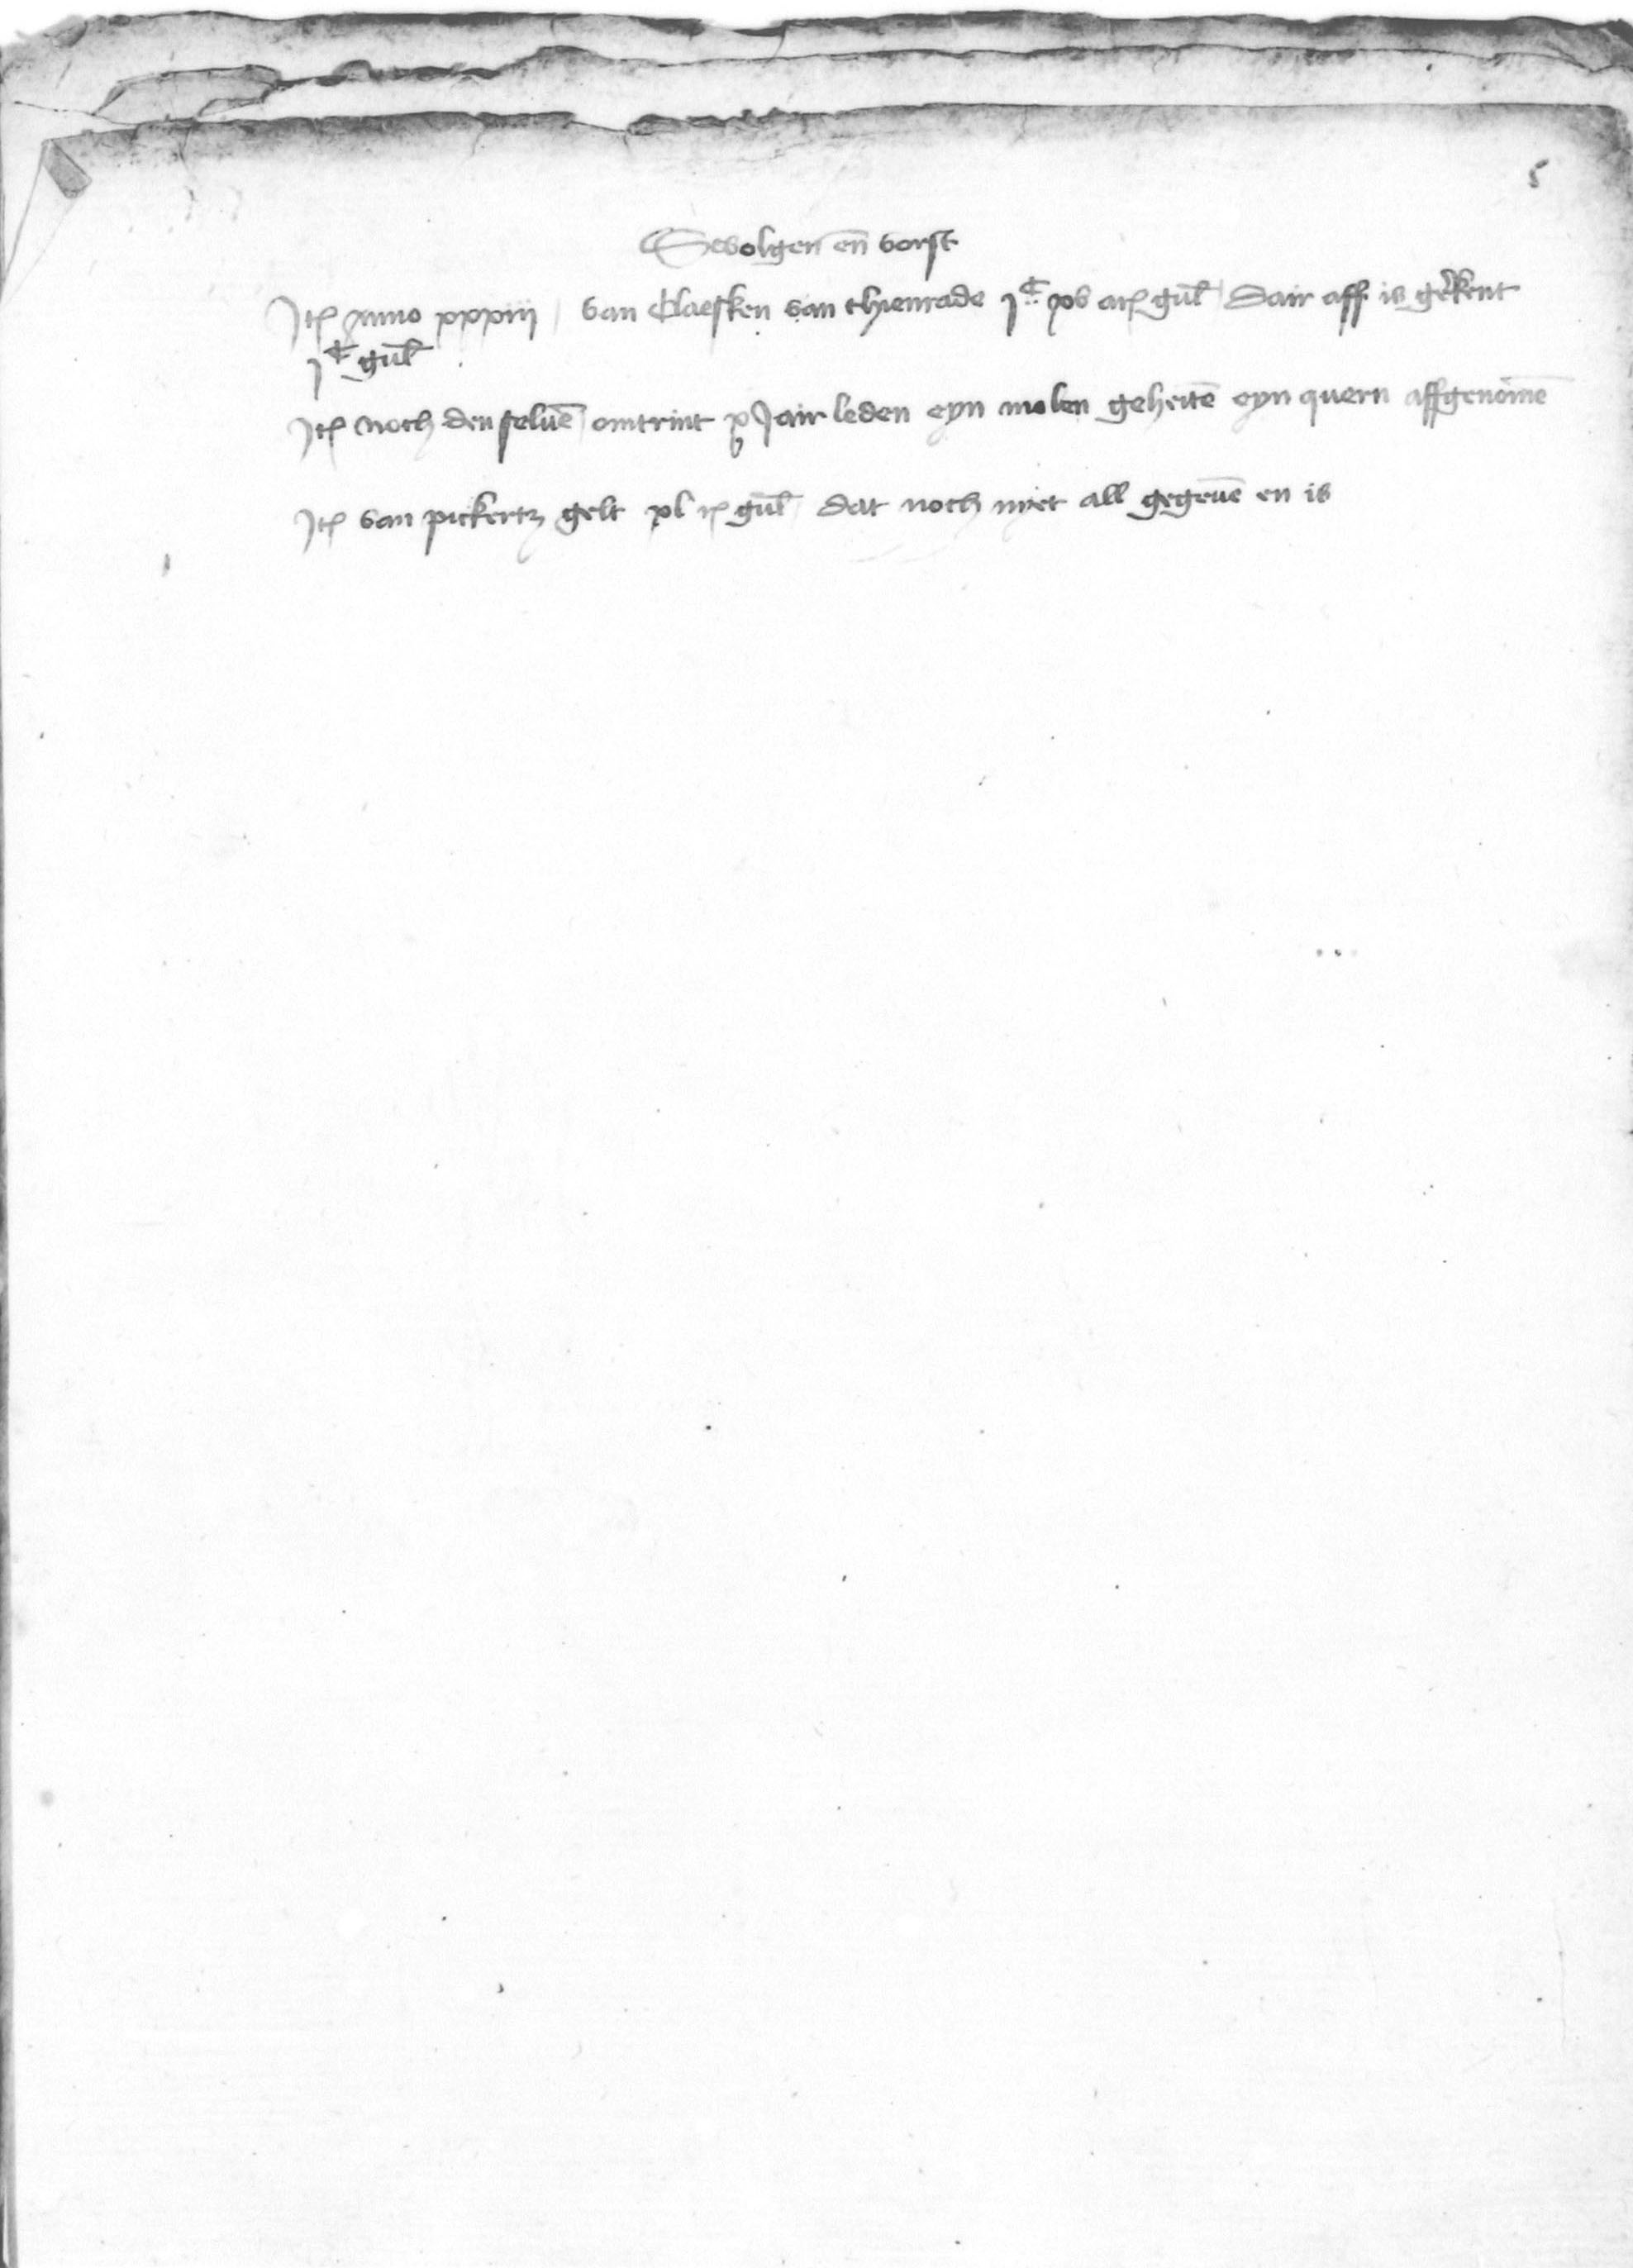 5
Sevolgen en̄ vorst
Itꝫ Anno xxxiij / van Claesken van thienrade jC xv arꝫ gul̄ / Dair aff is gerekent
jC gul̄
Itꝫ noch den seluē / omtrint x Jair leden eyn molen geheitē eyn quern affgenomē
Itꝫ van pickertz gelt xl rꝫ gul̄ / dat noch nyet all gegeuē en is